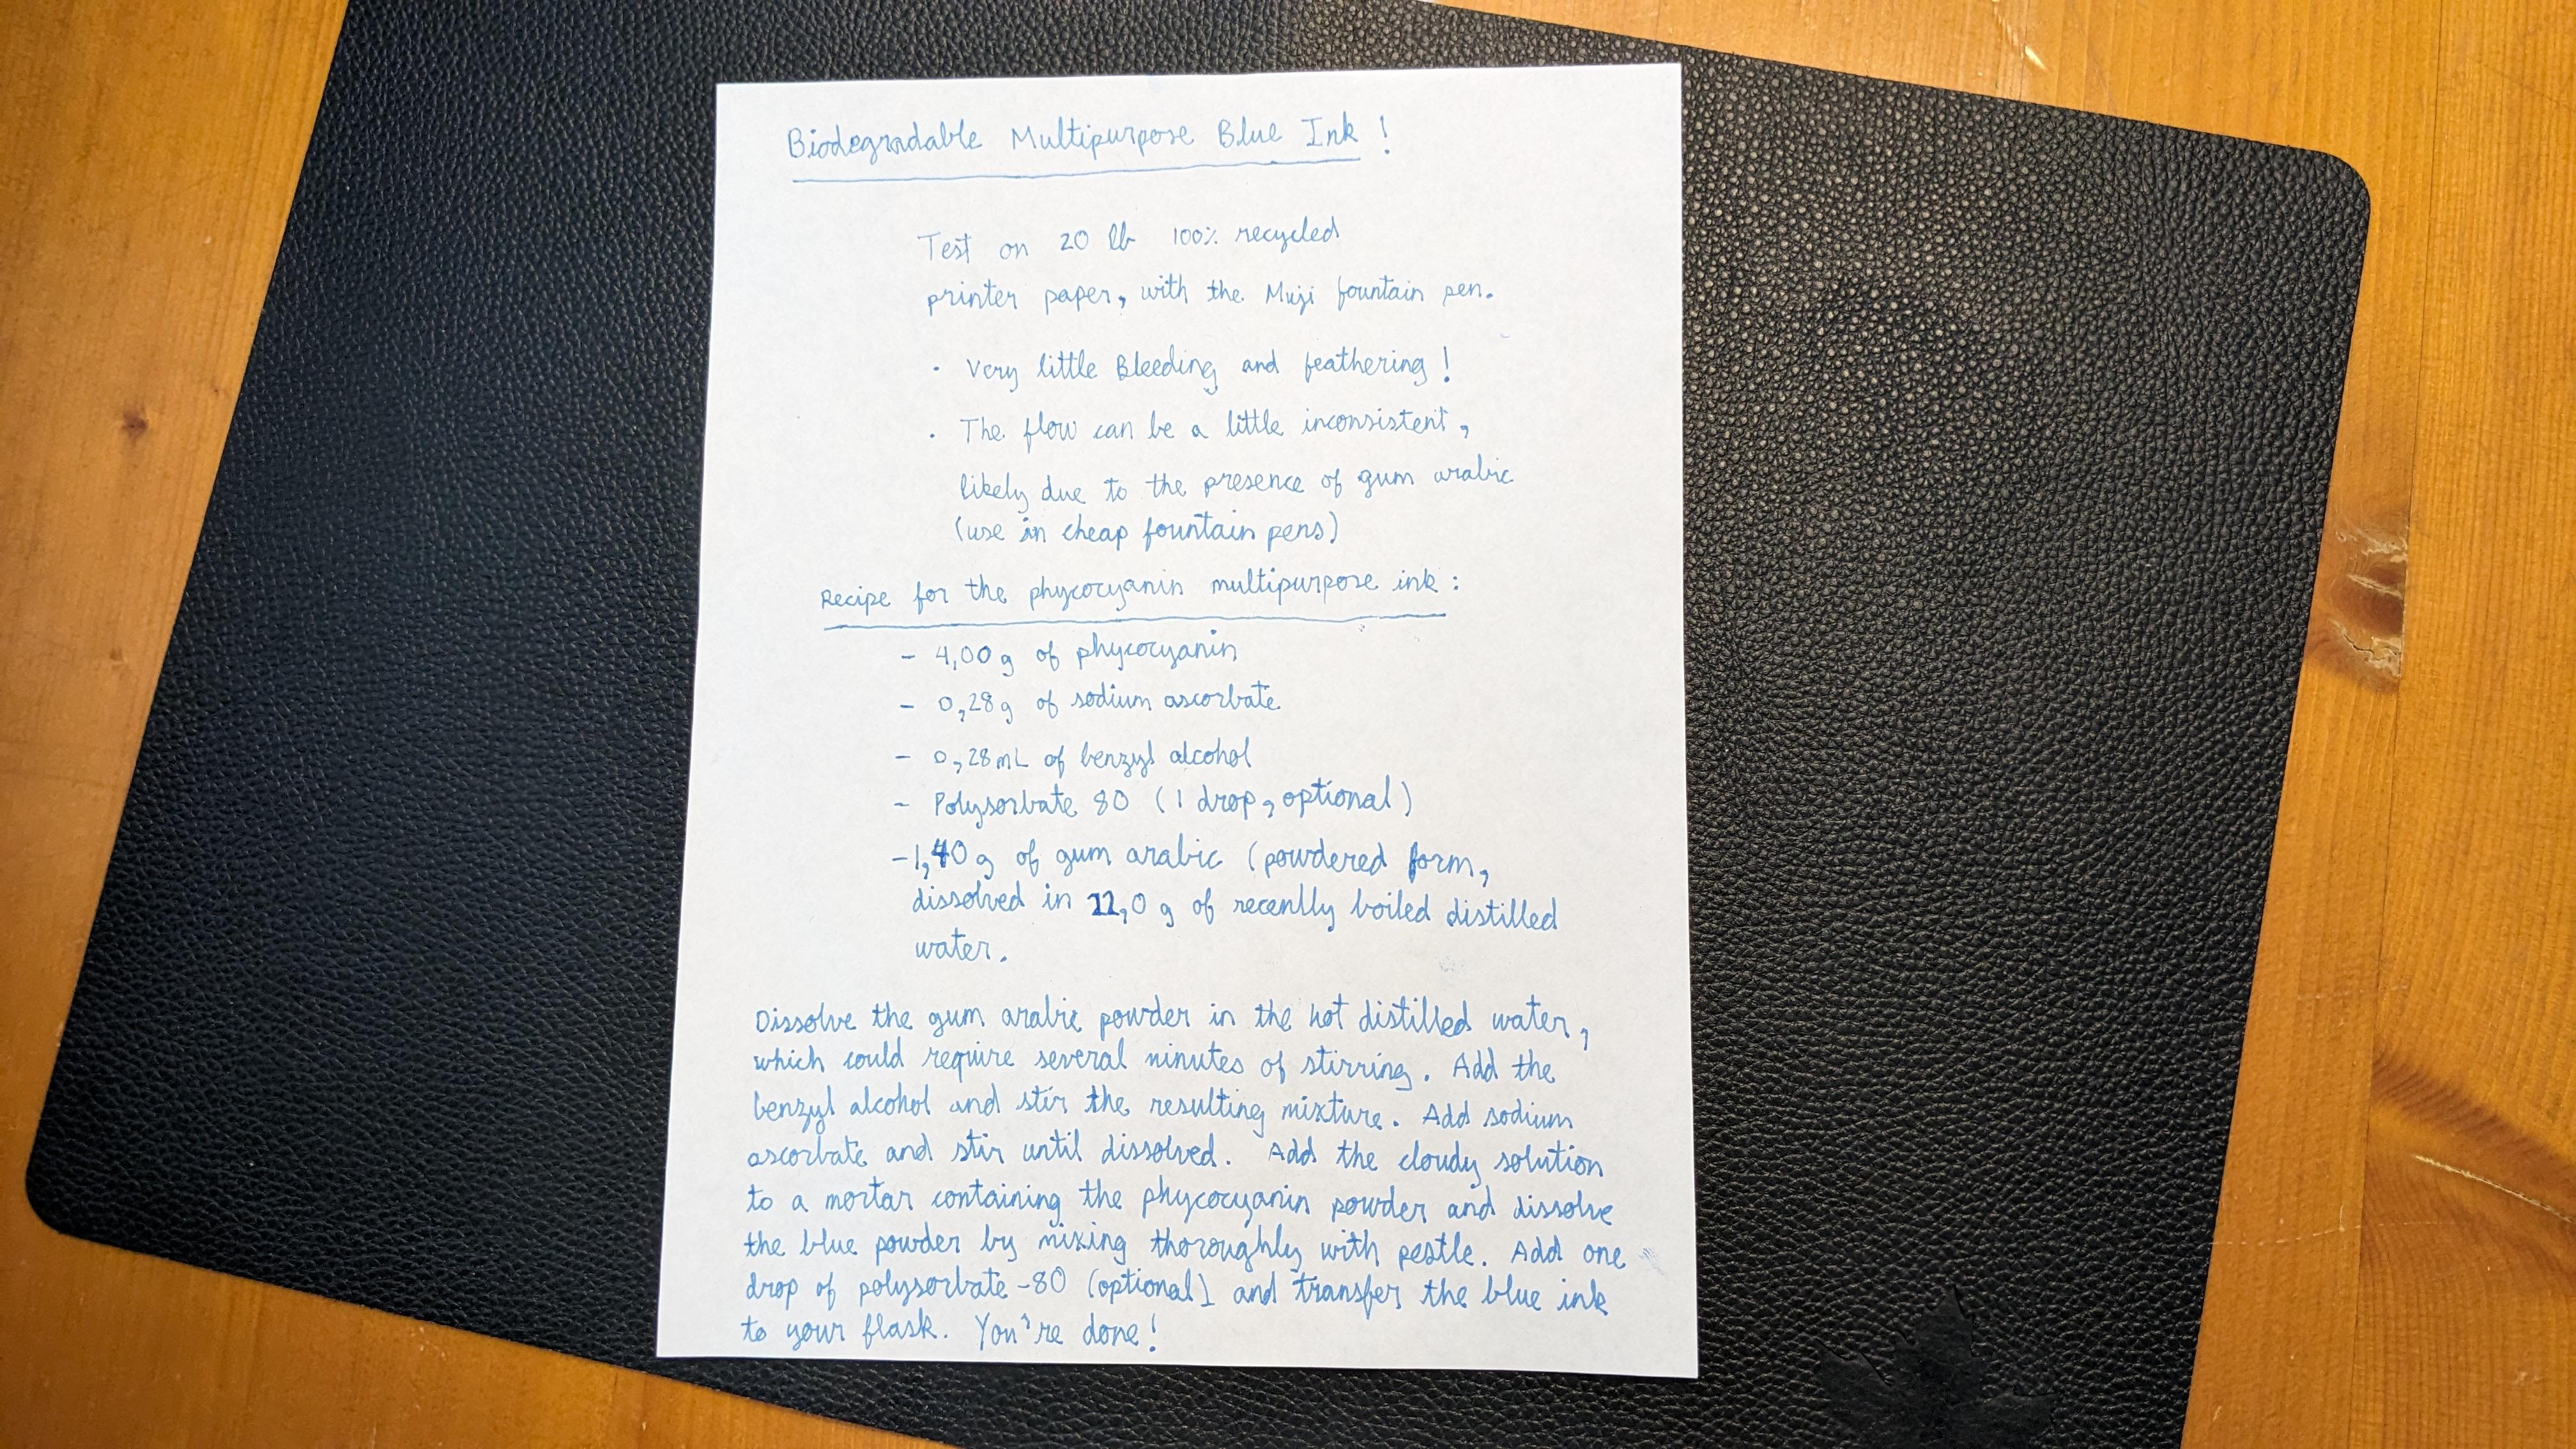 Biodegradable Multipurpose Blue Ink !
Test on 20 lb 100% recycled
printer paper, with the Muji fountain pen.
· Very little Bleeding and feathering !
· The flow can be a little inconsistent,
likely due to the presence of gum arabic
(use in cheap fountain pens)
Recipe for the phycocyanin multipurpose ink :
- 4,00 g of phycocyanin
- 0,28 g of sodium ascorbate
- 0,28 mL of benzyl alcohol
- Polysorbate 80 (1 drop, optional)
- 1,40 g of gum arabic (powdered form,
dissolved in 22,0 g of recently boiled distilled
water.
Dissolve the gum arabic powder in the hot distilled water,
which could require several minutes of stirring. Add the
benzyl alcohol and stir the resulting mixture. Add sodium
ascorbate and stir until dissolved. Add the cloudy solution
to a mortar containing the phycocyanin powder and dissolve
the blue powder by mixing thoroughly with pestle. Add one
drop of polysorbate-80 (optional) and transfer the blue ink
to your flask. You're done!